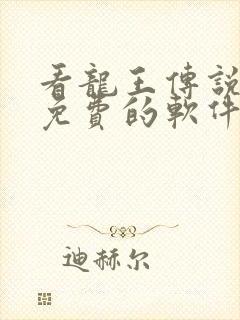 看龍王傳說
免費的軟件
迪赫尔